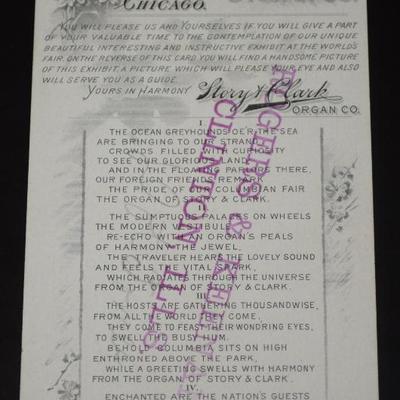 Chicago.
YOU WILL PLEASE US AND YOURSELVES IF YOU WILL GIVE A PART
OF YOUR VALUABLE TIME TO THE CONTEMPLATION OF OUR UNIQUE
BEAUTIFUL INTERESTING AND INSTRUCTIVE EXHIBIT AT THE WORLD'S
FAIR. ON THE REVERSE OF THIS CARD YOU WILL FIND A HANDSOME PICTURE
OF THIS EXHIBIT, A PICTURE, WHICH WILL PLEASE YOUR EYE AND ALSO
WILL SERVE YOU AS A GUIDE.
YOURS IN HARMONY Story & Clark
ORGAN CO.
I.
THE OCEAN GREYHOUNDS O'ER THE SEA
ARE BRINGING TO OUR STRAND
CROWDS FILLED WITH CURIOSITY
TO SEE OUR GLORIOUS LAND
AND IN THE FLOATING PARLORS THERE
OUR FOREIGN FRIENDS REMARK
THE PRIDE OF OUR COLUMBIAN FAIR
THE ORGAN OF STORY & CLARK.
THE SUMPTUOUS PALACES ON WHEELS
THE MODERN
RE-ECHO WITH AN ORGAN'S PEALS
OF HARMONY THE JEWEL,
THE TRAVELER HEARS THE LOVELY SOUND
AND FEELS THE VITAL SPARK,
WHICH RADIATES THROUGH THE UNIVERSE
FROM THE ORGAN OF STORY & CLARK.
III.
THE HOSTS ARE GATHERING THOUSANDWISE,
FROM ALL THE WORLD THEY COME,
THEY COME TO FEAST THEIR WONDRING EYES,
TO SWELL THE BUSY HUM.
BEHOLD COLUMBIA SITS ON HIGH
ENTHRONED ABOVE THE PARK,
WHILE A GREETING SWELLS WITH HARMONY
FROM THE ORGAN OF STORY & CLARK.
IV.
ENCHANTED ARE THE NATION'S GUESTS
&
CLINTON, ILLS